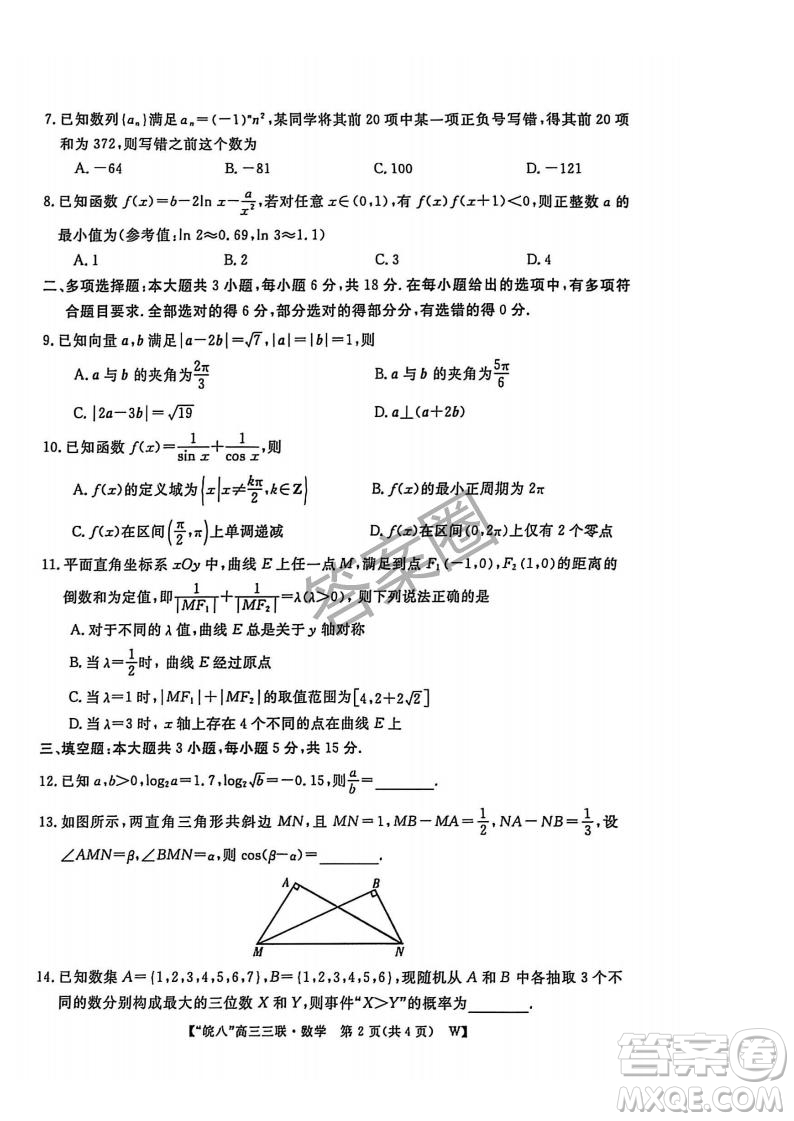 7. 已知数列{aₙ}满足 aₙ=(-1)ⁿn²,某同学将其前 20 项中某一项正负号写错,得前 20 项
和为 372,则写错之前这个数为
A. -64 B. -81 C. 100 D. -121
8. 已知函数 f(x)=b-2ln x-a/x²,若对任意 x∈(0,1),有 f(x)f(x+1)<0,则正整数 a 的
最小值为(参考值:ln 2≈0.69,ln 3≈1.1)
A. 1 B. 2 C. 3 D. 4
二、多项选择题:本大题共 3 小题,每小题 6 分,共 18 分.在每小题给出的选项中,有多项符
合题目要求.全部选对的得 6 分,部分选对的得部分分,有选错的得 0 分.
9. 已知向量 a,b 满足|a-2b|=√7,|a|=|b|=1,则
A. a 与 b 的夹角为 2π/3 B. a 与 b 的夹角为 5π/6
C. |2a-3b|=√19 D. a⊥(a+2b)
10. 已知函数 f(x)=1/sin x+1/cos x,则
A. f(x)的定义域为{x|x≠kπ/2,k∈Z} B. f(x)的最小正周期为 2π
C. f(x)在区间(π/2,π)上单调递减 D. f(x)在区间(0,2π)上仅有 2 个零点
11. 平面直角坐标系 xOy 中,曲线 E 上任一点 M,满足到点 F₁(-1,0),F₂(1,0)的距离的
倒数和为定值,即 1/|MF₁|+1/|MF₂|=λ(λ>0),则下列说法正确的是
A. 对于不同的 λ 值,曲线 E 总是关于 y 轴对称
B. 当 λ=1/2 时,曲线 E 经过原点
C. 当 λ=1 时,|MF₁|+|MF₂|的取值范围为[4,2+2√2]
D. 当 λ=3 时,x 轴上存在 4 个不同的点在曲线 E 上
三、填空题:本大题共 3 小题,每小题 5 分,共 15 分.
12. 已知 a,b>0,log₂a=1.7,log₂√b=-0.15,则 a/b=________.
13. 如图所示,两直角三角形共斜边 MN,且 MN=1,MB-MA=1/2,NA-NB=1/3,设
∠AMN=β,∠BMN=α,则 cos(β-α)=________.
A
B
M
N
14. 已知数集 A={1,2,3,4,5,6,7},B={1,2,3,4,5,6},现随机从 A 和 B 中各抽取 3 个不
同的数分别构成最大的三位数 X 和 Y,则事件“X>Y”的概率为________.
【“皖八”高三三联·数学 第 2 页(共 4 页) W】
答案圈
答案圈
MXQE.COM